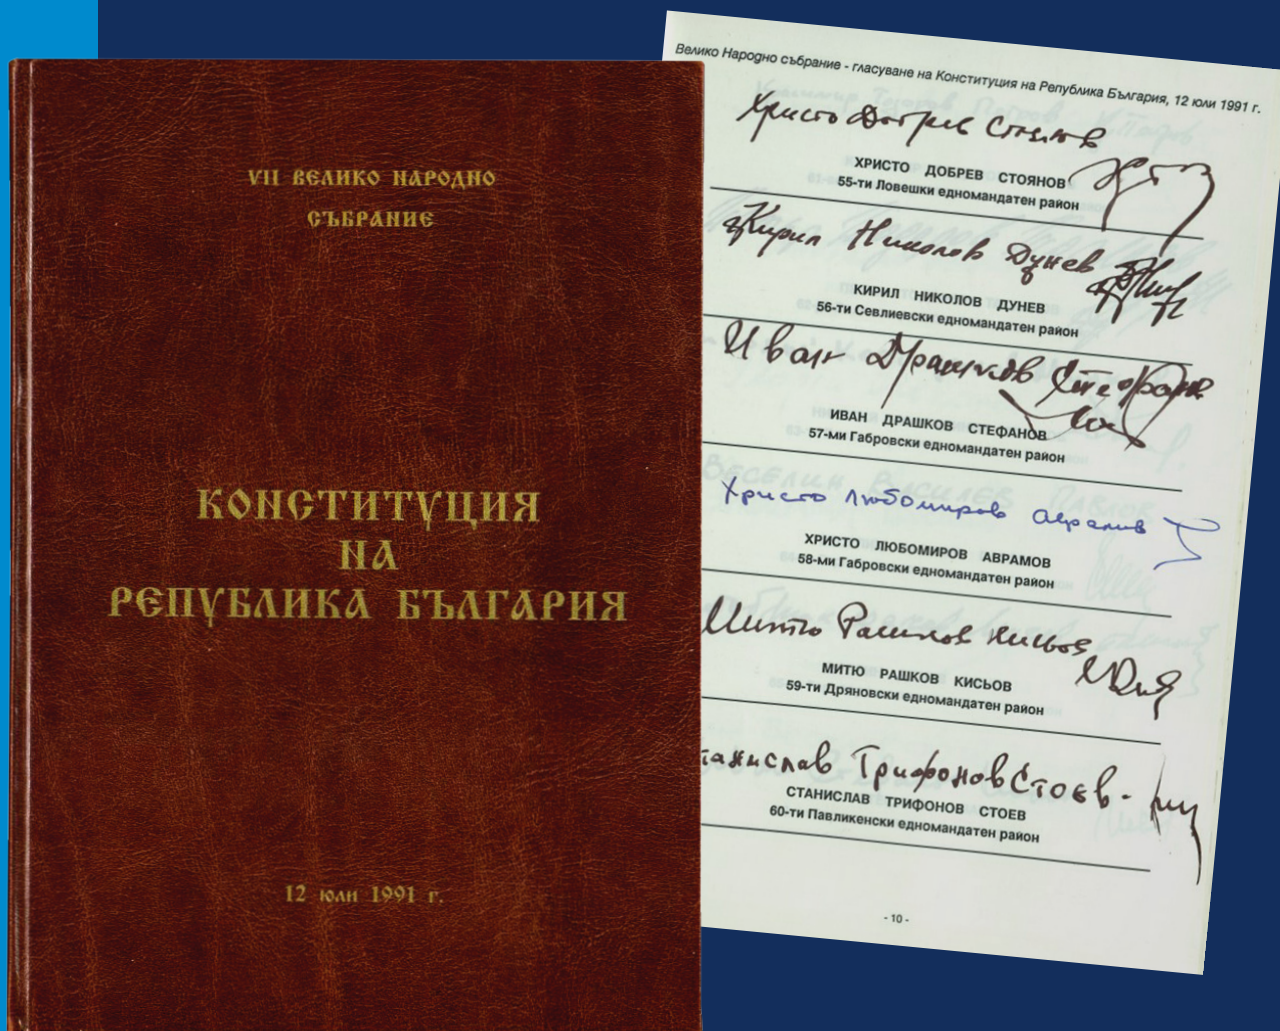 VII ВЕЛИКО НАРОДНО
СЪБРАНИЕ
КОНСТИТУЦИЯ
НА
РЕПУБЛИКА БЪЛГАРИЯ
12 юли 1991 г.
Велико Народно събрание - гласуване на Конституция на Република България, 12 юли 1991 г.
Христо Добрев Стоянов
ХРИСТО ДОБРЕВ СТОЯНОВ
55-ти Ловешки едномандатен район
Кирил Николов Дунев
КИРИЛ НИКОЛОВ ДУНЕВ
56-ти Севлиевски едномандатен район
Иван Драшков Стефанов
ИВАН ДРАШКОВ СТЕФАНОВ
57-ми Габровски едномандатен район
Христо Любомиров Аврамов
ХРИСТО ЛЮБОМИРОВ АВРАМОВ
58-ми Габровски едномандатен район
Митю Рашков Кисьов
МИТЮ РАШКОВ КИСЬОВ
59-ти Дряновски едномандатен район
танислав Трифонов Стоев
СТАНИСЛАВ ТРИФОНОВ СТОЕВ
60-ти Павликенски едномандатен район
- 10 -